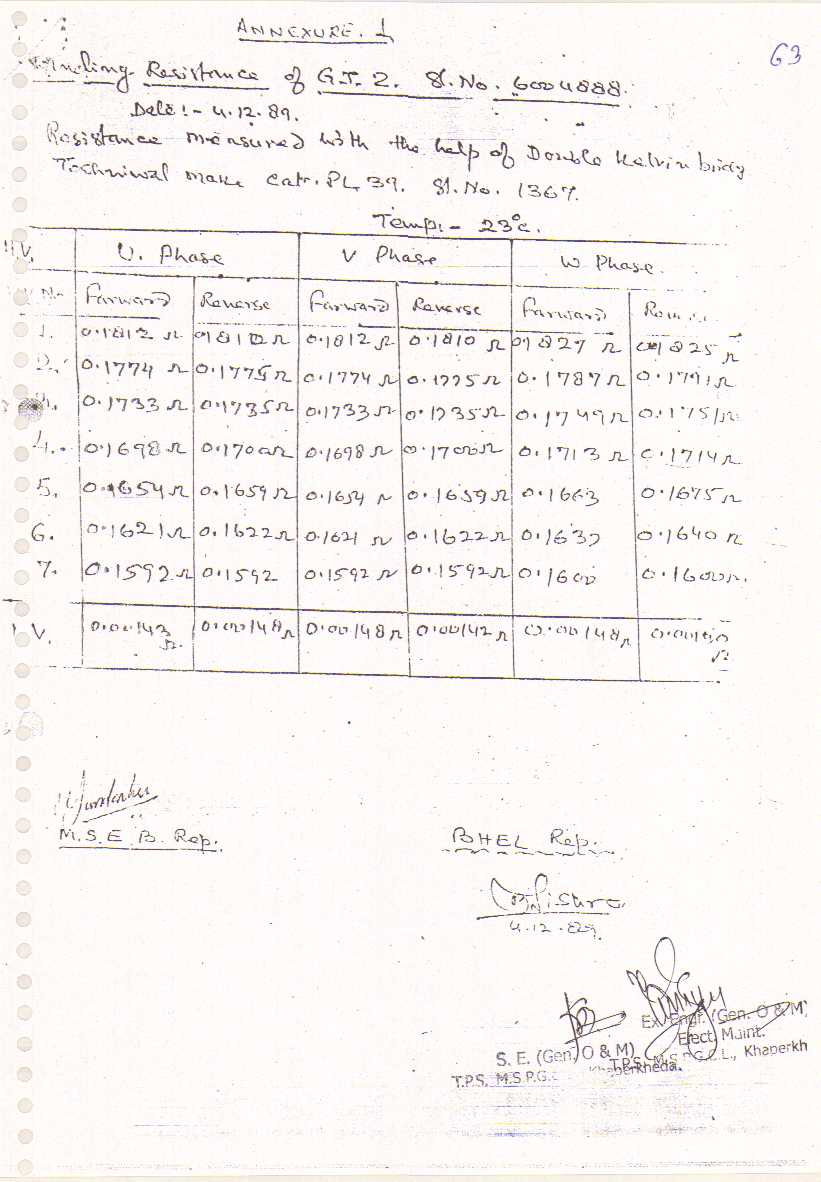 ANNEXURE. 1
63
Resistance of G.T. 2. Sl. No. 6004888.
Date:- 4.12.89.
Resistance measured with the help of Double Kelvin
make cat. PL 39. Sl. No. 1367.
Temp:- 23°c.
U. Phase V Phase W Phase.
Farward Reverse Farward Reverse Farward
1. 0.1812 Ω Ω 0.1812 Ω 0.1810 Ω 0.1827 Ω 0.1825 Ω
2. 0.1774 Ω 0.1775 Ω 0.1774 Ω 0.1775 Ω 0.1787 Ω 0.1791 Ω
0.1733 Ω 0.1735 Ω 0.1733 Ω 0.1735 Ω 0.1749 Ω 0.1751 Ω
4. 0.1698 Ω 0.1700 Ω 0.1698 Ω 0.1700 Ω 0.1713 Ω 0.1714 Ω
5. 0.1654 Ω 0.1659 Ω 0.1654 Ω 0.1659 Ω 0.1663 0.1675 Ω
6. 0.1621 Ω 0.1622 Ω 0.1621 Ω 0.1622 Ω 0.1640 Ω
7. 0.1592 Ω 0.1592 0.1592 Ω 0.1592 Ω 0.1600 0.1600 Ω.
V. 0.00143 Ω. 0.00148 Ω 0.00148 Ω 0.00142 Ω 0.00148 Ω Ω
M.S.E.B. Rep.
BHEL Rep.
4.12.89.
Ex. Engr. (Gen. O & M)
Elect. Maint.
T.P.S. M.S.P.G.C.L., Khaperkh
S. E. (Gen. O & M)
T.P.S. M.S.P.G. Khaperkheda.